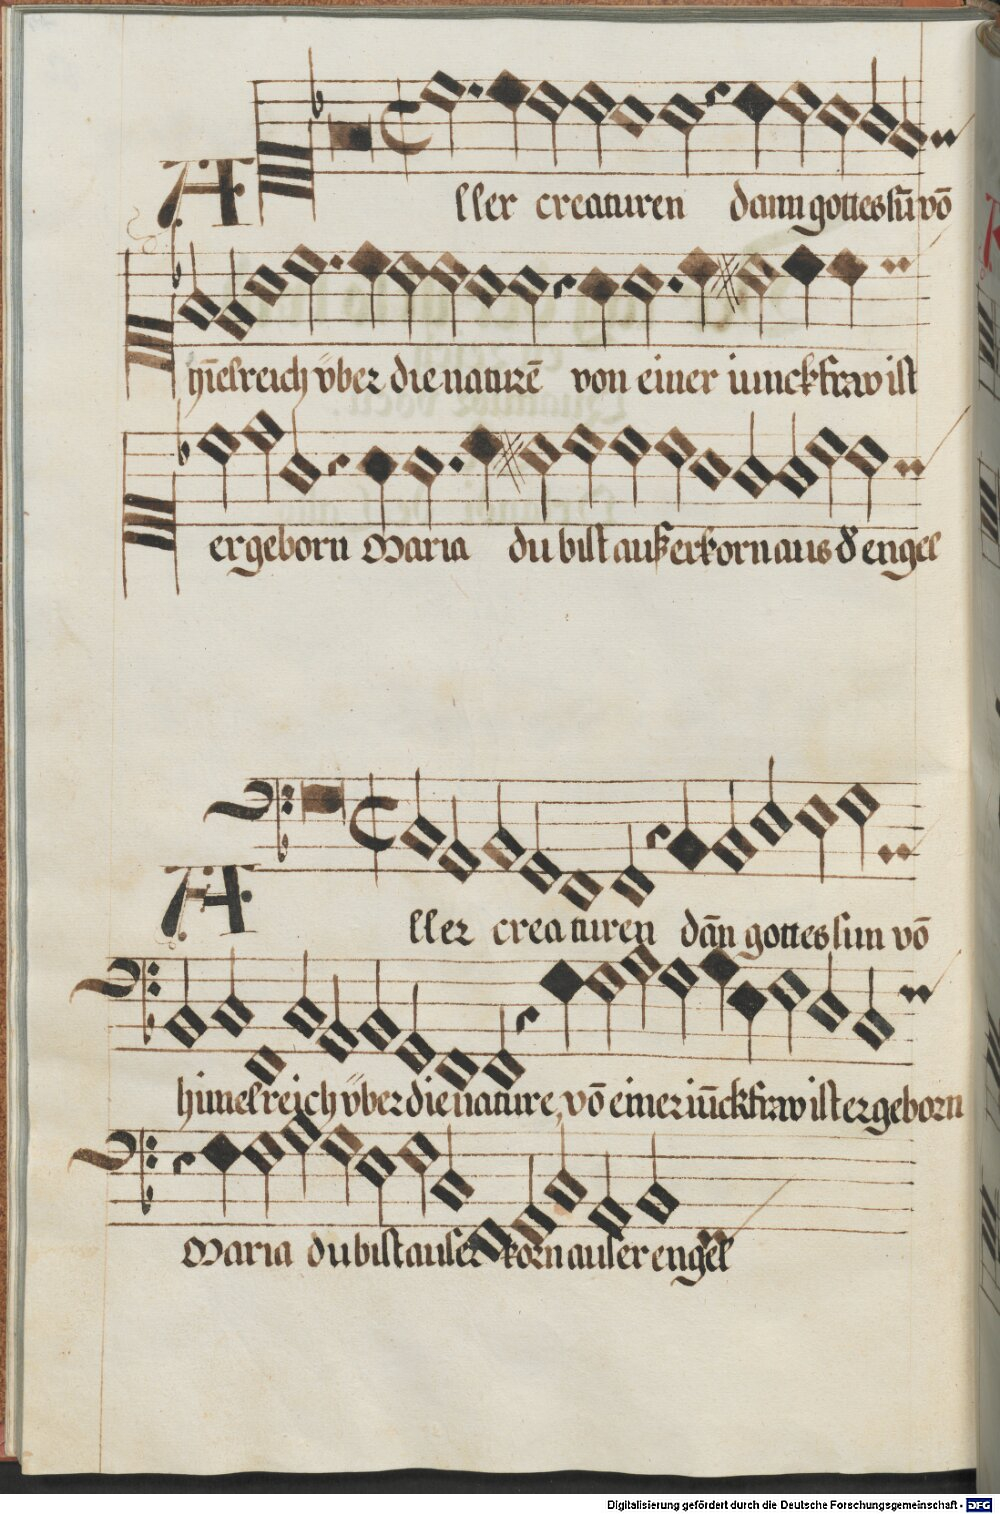 Aller creaturen dann gottes sūn vō
hīelreich vber die naturē von einer iunckfraw ist
ergeborn Maria du bist außerkorn aus d̕ engel
Aller creaturen dān gottes sun vō
himelreich vber die nature, vō einer iūckfraw ist ergeborn
Maria du bist auser korn auser engel
Digitalisierung gefördert durch die Deutsche Forschungsgemeinschaft - DFG